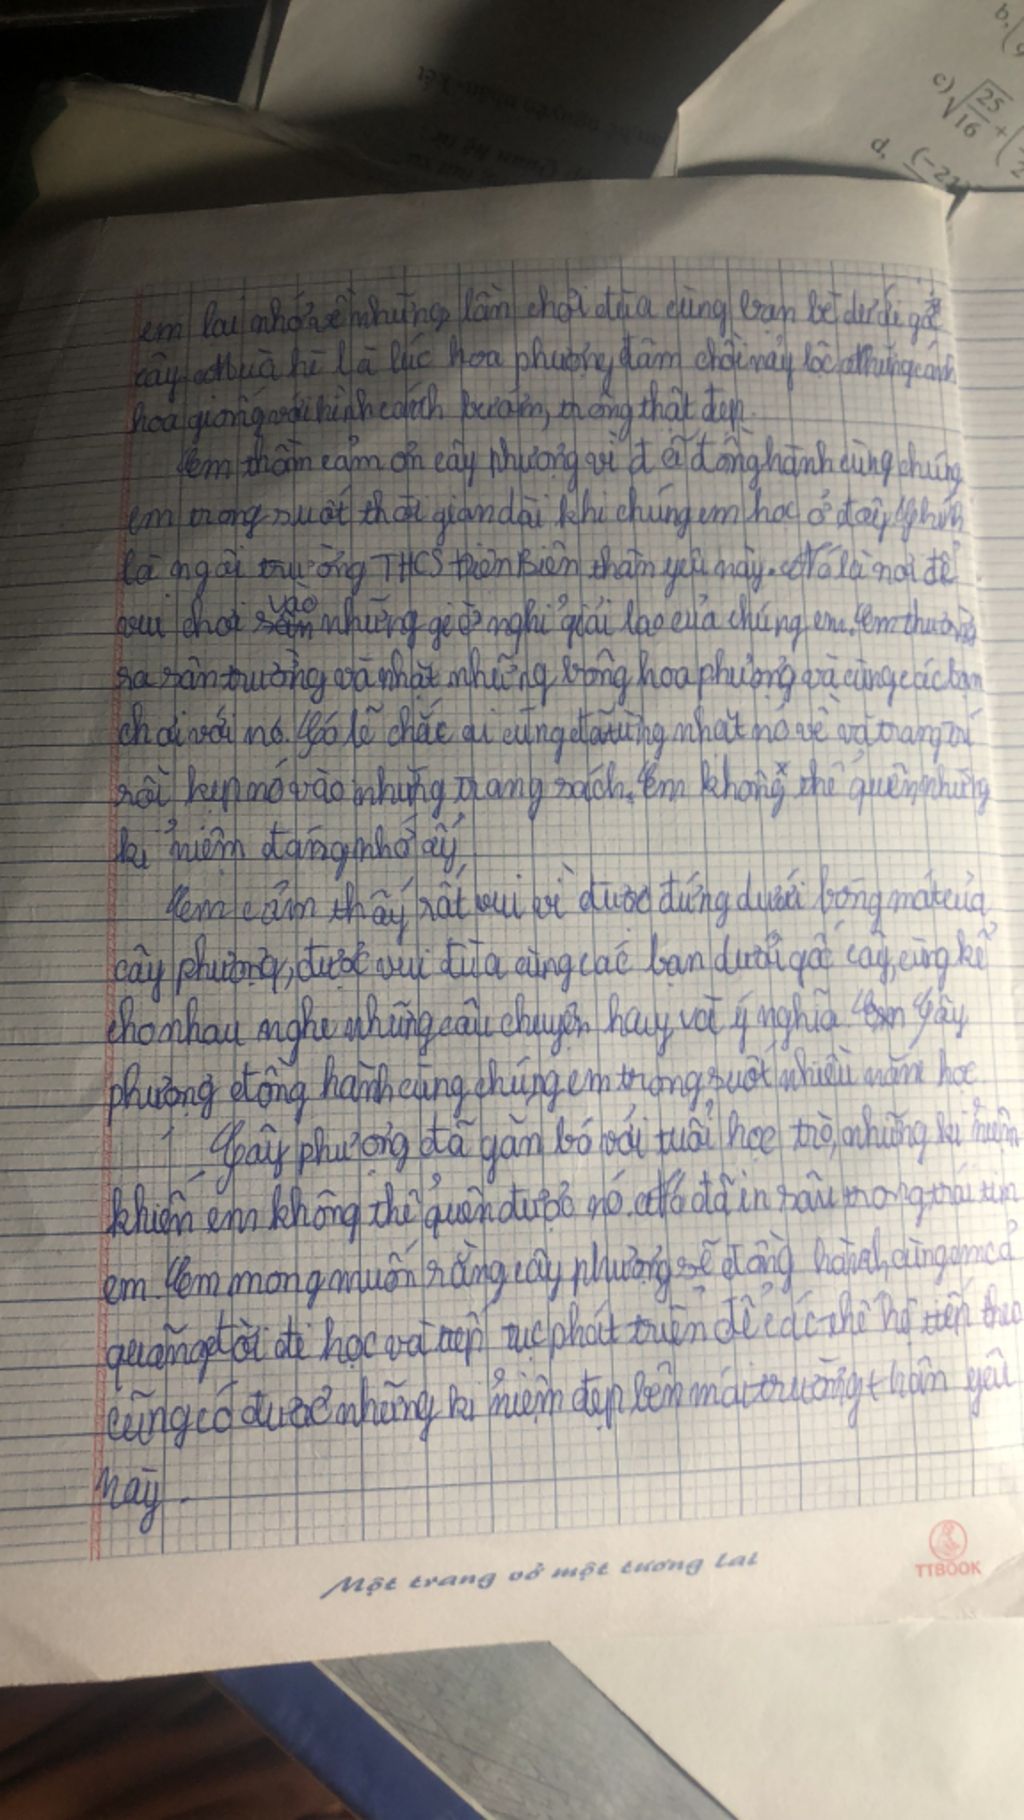 b,
c) √25/16 + (
d, (-21)
em lại nhớ về những lần chơi đùa cùng bạn bè dưới gốc
cây. Mùa hè là lúc hoa phượng đâm chồi nảy lộc. Những cánh
hoa giống với hình cánh bướm, trông thật đẹp.
Em thầm cảm ơn cây phượng vì đã đồng hành cùng chúng
em trong suốt thời gian dài khi chúng em học ở đây. Chính
là ngôi trường THCS thân yêu này. Nó là nơi để
vui chơi vào những giờ nghỉ giải lao của chúng em. Em thường
ra sân trường và nhặt những bông hoa phượng và cùng các bạn
chơi với nó. Có lẽ chắc ai cũng đã từng nhặt nó về và trang trí
rồi kẹp nó vào những trang sách. Em không thể quên những
kỉ niệm đáng nhớ ấy.
Em cảm thấy rất vui vì được đứng dưới bóng mát của
cây phượng, được vui đùa cùng các bạn dưới gốc cây, cùng kể
cho nhau nghe những câu chuyện hay và ý nghĩa. Cây
phượng đồng hành cùng chúng em trong suốt nhiều năm học
Cây phượng đã gắn bó với tuổi học trò, những kỉ niệm
khiến em không thể quên được nó. Nó đã in sâu trong trái tim
em. Em mong muốn rằng cây phượng sẽ đồng hành cùng em cả
quãng đời đi học và tiếp tục phát triển để các thế hệ tiếp theo
cũng có được những kỉ niệm đẹp bên mái trường thân yêu
này.
Một trang vở một tương lai
TTBOOK